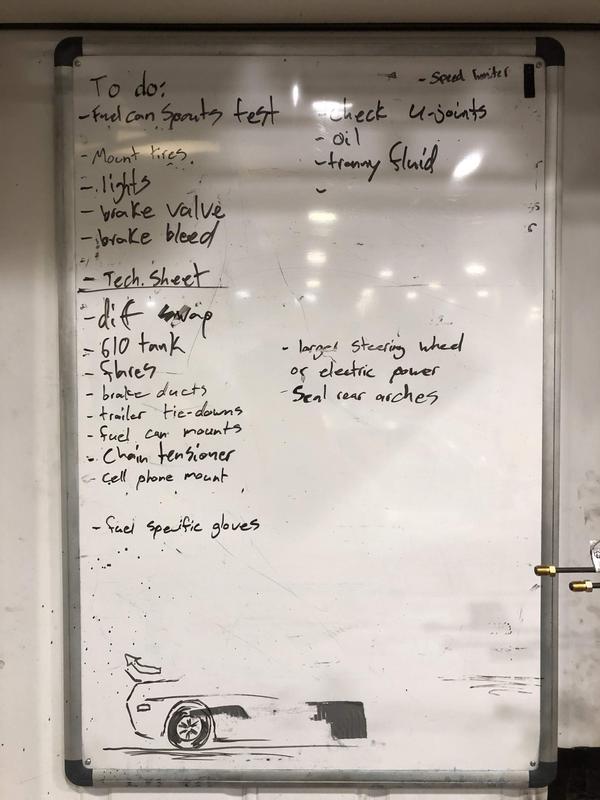 To do:
- Fuel can spouts test
- Mount tires
- lights
- brake valve
- brake bleed
- Tech. Sheet
- diff swap
- 610 tank
- flares
- brake ducts
- trailer tie-downs
- fuel can mounts
- Chain tensioner
- cell phone mount
- fuel specific gloves
- Speed limiter
- check u-joints
- oil
- tranny fluid
-
- larger steering wheel
or electric power
- Seal rear arches